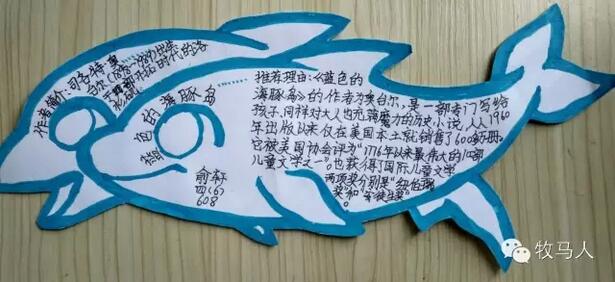 作者简介：司各特·奥
台尔（1898-1989）出生
于西部开拓时代的洛
杉矶
蓝色的海豚岛
推荐理由：《蓝色的
海豚岛》的作者为奥台尔，是一部专门写给
孩子，同样对大人也充满魔力的历史小说，从1960
年出版以来仅在美国本土就销售了600多万册。
它被美国协会评为“1776年以来最伟大的10部
儿童文学之一”。也获得了国际儿童文学
两项奖分别是“纽伯瑞
奖和“安徒生奖”
俞轩
四(5)
608
牧马人